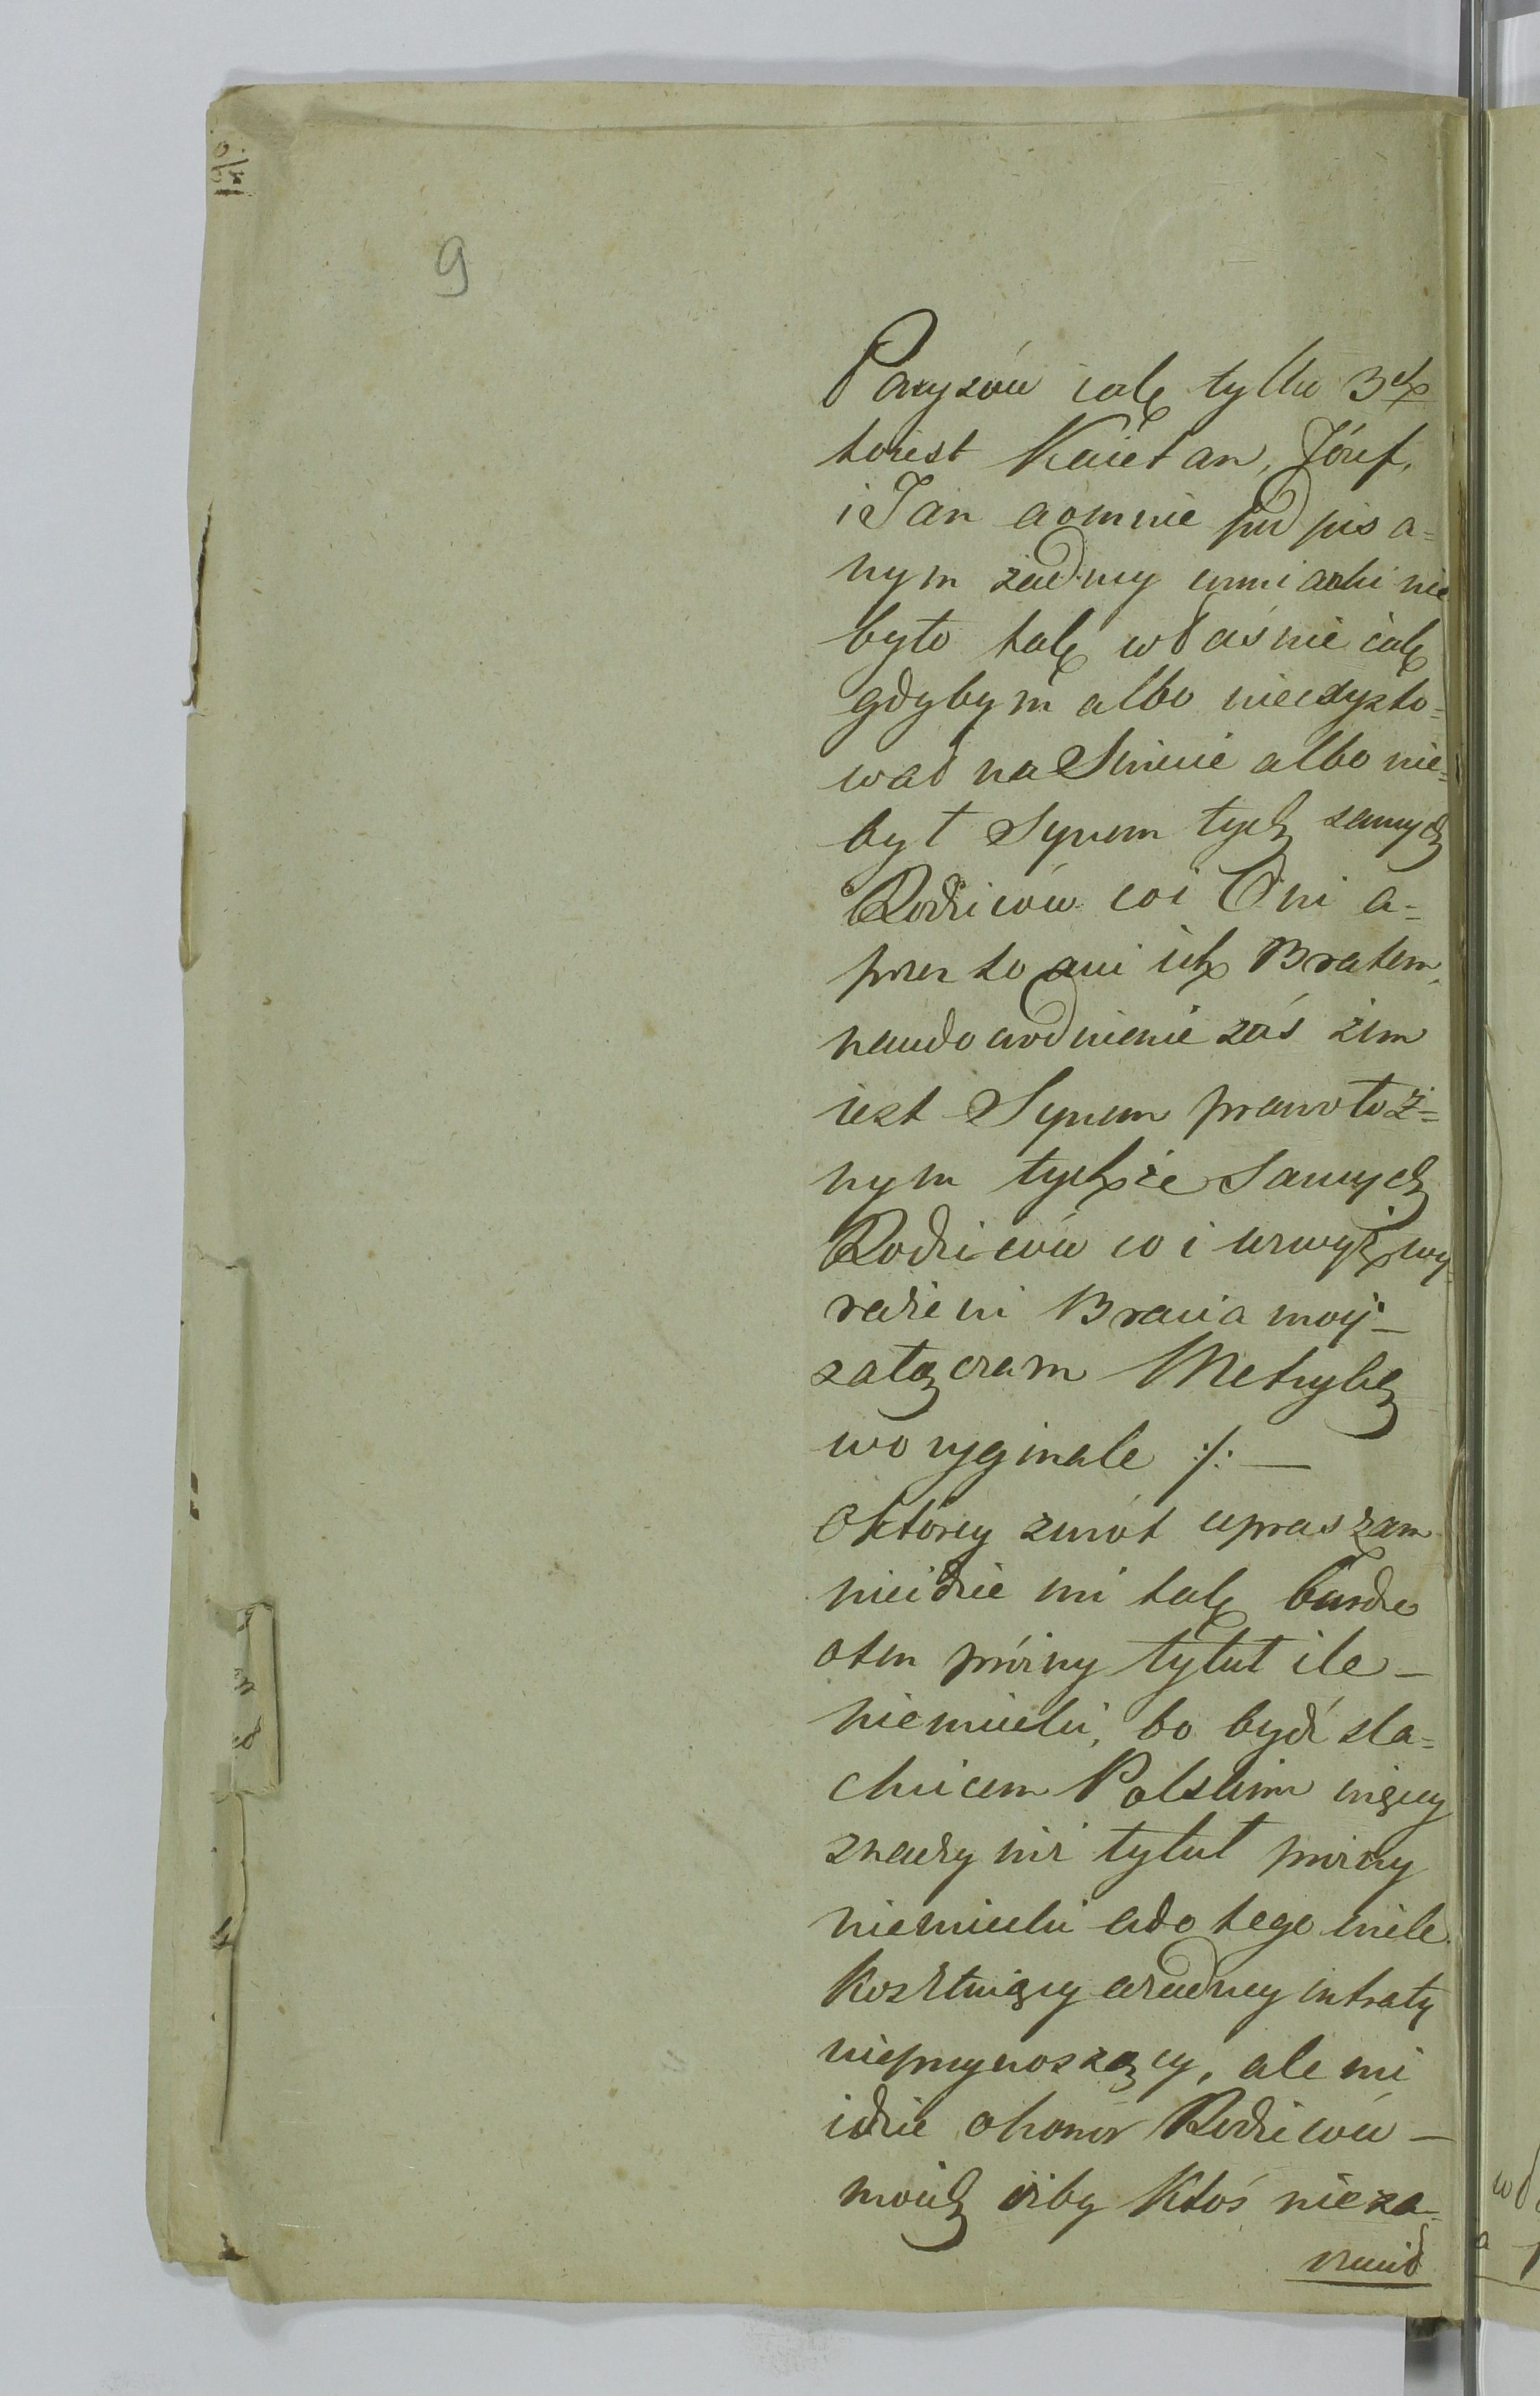 9
Paryzów iak tylko 3ch
toiest Kaietan, Józef,
i Jan aomnie podpisa=
nym żadney wmianki nie
było tak właśnie iak
gdybym albo nieexysto=
wał na Świecie albo nie=
był Synem tych samych
Rodziców coi Oni a=
przez to ani ich Bratem,
naudowodnienie zaś żem
iest Synem prawołoż=
nym tychże Samych
Rodziców co i wzwyż wy=
rażeni Bracia moij –
załączam Metrykę
woryginale ./. —
októrey zwrót upraszam
nieidzie mi tak bardzo
oten prózny tytuł ile –
niemiecki, bo bydź sla=
chcicem Polskim więcey
znaczy niż tytuł prózny
niemiecki ado tego wiele
kosztuiący ażadney intraty
nieprzynoszący, ale mi
idzie ohonor Rodziców –
moich żeby Ktoś nieza=
rzucił